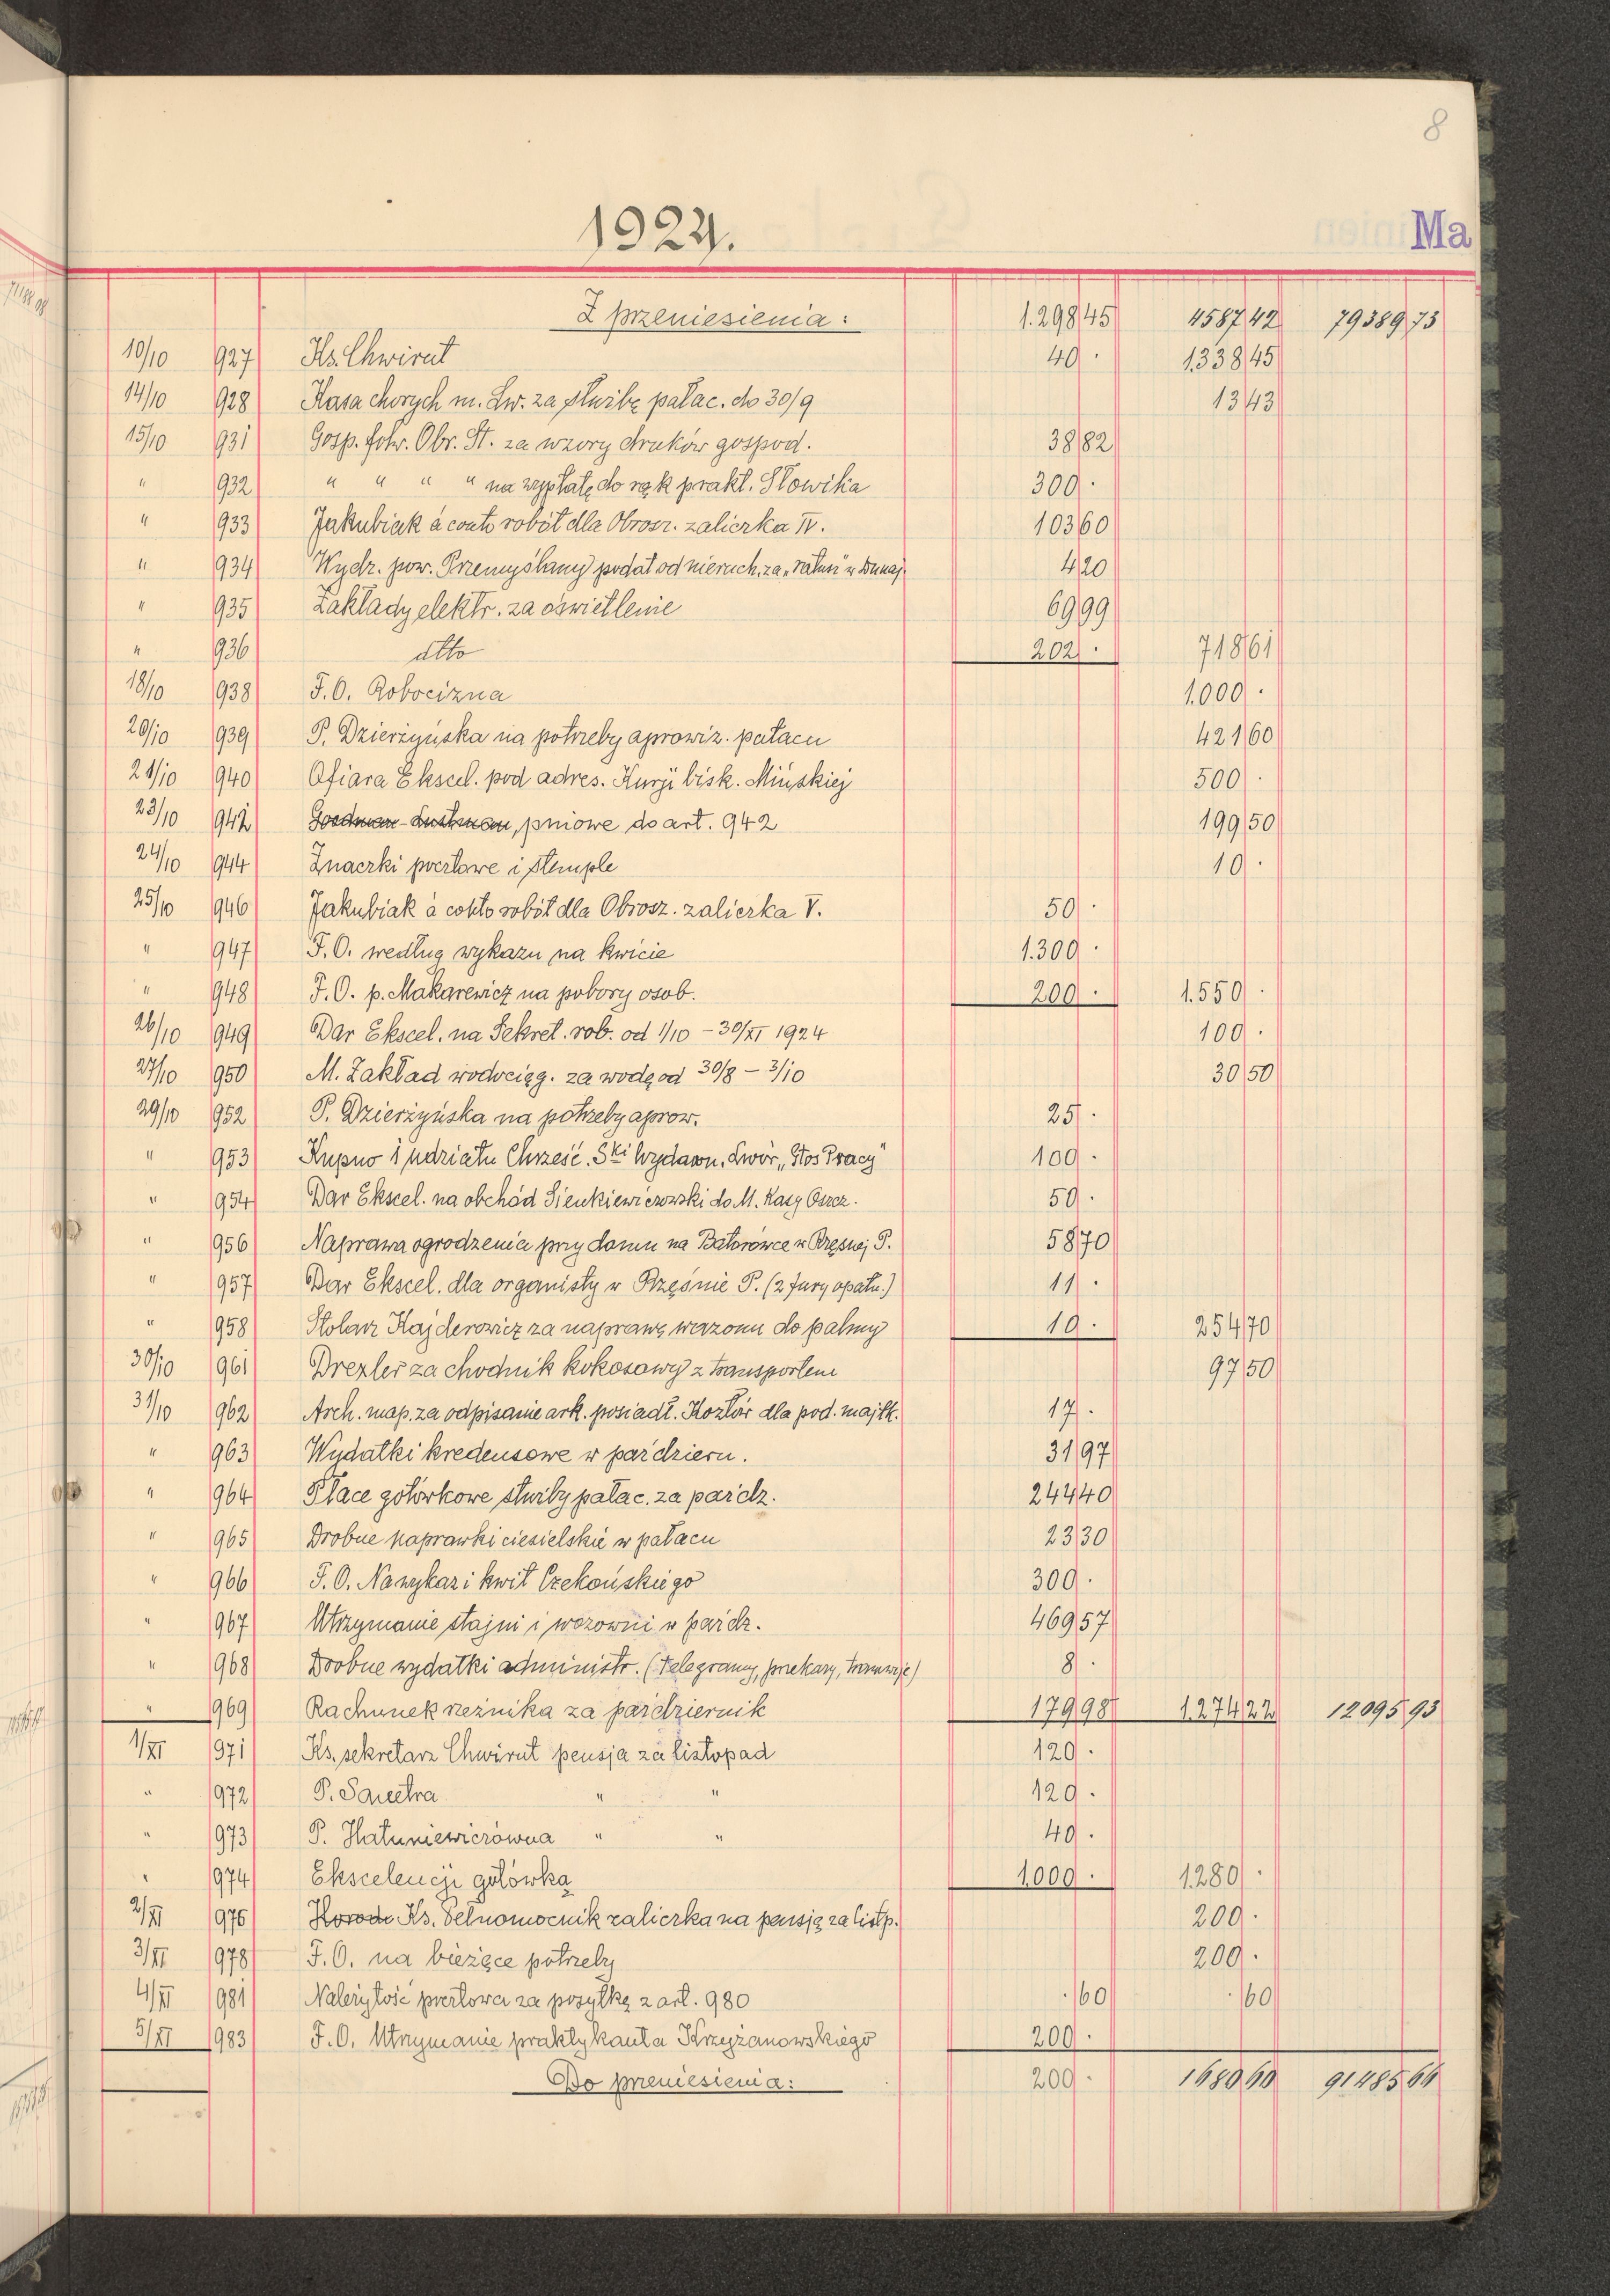 8
1924.
Ma
Z przeniesienia: 1.298 45 4587 42 79389 73
10/10 927 Ks. Chwirut 40 · 1.338 45
14/10 928 Kasa chorych m. Lw. za służbę pałac. do 30/9 13 43
15/10 931 Gosp. folw. Obr. St. za wzory druków gospod. 38 82
" 932 " " " " na wypłatę do rąk prakt. Słowika 300 ·
" 933 Jakubiak à conto robót dla Obrosz. zaliczka IV. 103 60
" 934 Wydz. pow. Przemyślany podat od nieruch. za „ratusz" w Dunaj. 4 20
" 935 Zakłady elektr. za oświetlenie 69 99
" 936 dtto 202 · 718 61
18/10 938 F.O. Robocizna 1.000 ·
20/10 939 P. Dzierżyńska na potrzeby aprowiz. pałacu 421 60
21/10 940 Ofiara Ekscel. pod adres. Kurji bisk. Mińskiej 500 ·
23/10 942 pniowe do art. 942 199 50
24/10 944 Znaczki pocztowe i stemple 10 ·
25/10 946 Jakubiak à conto robót dla Obrosz. zaliczka V. 50 ·
" 947 F.O. według wykazu na kwicie 1.300 ·
" 948 F.O. p. Makarewicz na pobory osob. 200 · 1.550 ·
26/10 949 Dar Ekscel. na Sekret. rob. od 1/10 – 30/XI 1924 100 ·
27/10 950 M. Zakład wodociąg. za wodę od 30/8 – 3/10 30 50
29/10 952 P. Dzierżyńska na potrzeby aprow. 25 ·
" 953 Kupno 1 udziału Chrześć. Ski Wydawn. Lwów „Głos Pracy" 100 ·
" 954 Dar Ekscel. na obchód Sienkiewiczowski do M. Kasy Oszcz. 50 ·
" 956 Naprawa ogrodzenia przy domu na Batorówce w Rzęsnej P. 58 70
" 957 Dar Ekscel. dla organisty w Rzęśnie P. (2 fury opału.) 11 ·
" 958 Stolarz Kajderowicz za naprawę wazonu do palmy 10 · 254 70
30/10 961 Drexler za chodnik kokosowy z transportem 97 50
31/10 962 Arch. map. za odpisanie ark. posiadł. Kozłów dla pod. majątk. 17 ·
" 963 Wydatki kredensowe w październ. 31 97
" 964 Płace gotówkowe służby pałac. za paźdz. 244 40
" 965 Drobne naprawki ciesielskie w pałacu 23 30
" 966 F.O. Na wykaz i kwit Czekońskiego 300 ·
" 967 Utrzymanie stajni i wozowni w paźdz. 469 57
" 968 Drobne wydatki administr. (telegramy, przekazy, tramwaje) 8 ·
" 969 Rachunek rzeźnika za październik 179 98 1.274 22 12095 93
1/XI 971 Ks. sekretarz Chwirut pensja za listopad 120 ·
" 972 P. " " 120 ·
" 973 P. Hałuniewiczówna " " 40 ·
" 974 Ekscelencji gotówką 1.000 · 1.280 ·
2/XI 976 Ks. Pełnomocnik zaliczka na pensję za listp. 200 ·
3/XI 978 F.O. na bieżące potrzeby 200 ·
4/XI 981 Należytość pocztowa za posyłkę z art. 980 · 60 · 60
5/XI 983 F.O. Utrzymanie praktykanta Krzyżanowskiego 200 ·
Do przeniesienia: 200 · 1680 60 91485 66